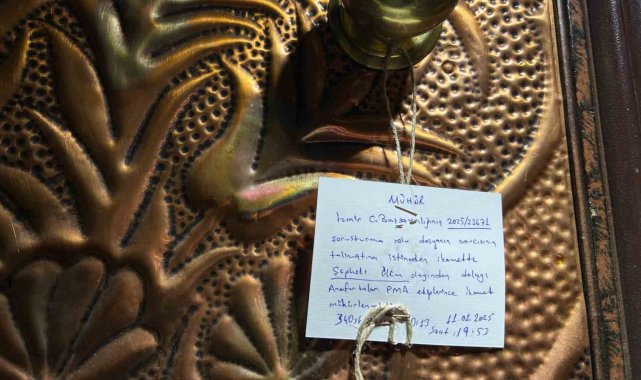 MÜHÜR
İzmir C. Başsavcılığının 2025/23671
soruşturma nolu dosyanın savcısının
talimatına istinaden ikamette
Şüpheli ölüm olayından dolayı
Anafartalar PMA ekiplerince ikamet
mühürlen
11.02.2025
Saat: 19:53